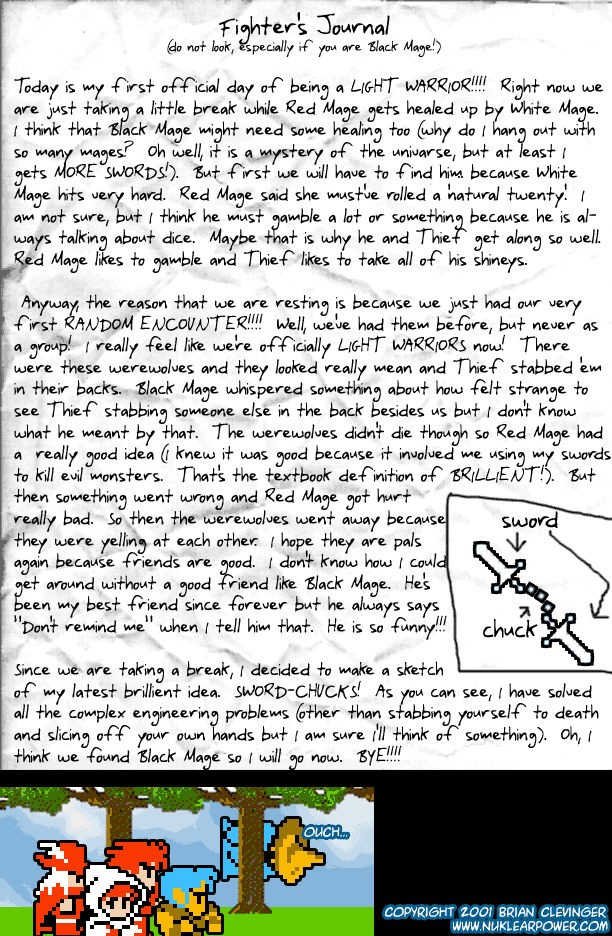 Fighter's Journal
(do not look, especially if you are Black Mage!)
Today is my first official day of being a LIGHT WARRIOR!!!! Right now we
are just taking a little break while Red Mage gets healed up by White Mage.
I think that Black Mage might need some healing too (why do I hang out with
so many mages? Oh well, it is a mystery of the univarse, but at least I
gets MORE SWORDS!). But first we will have to find him because White
Mage hits very hard. Red Mage said she must've rolled a 'natural twenty'. I
am not sure, but I think he must gamble a lot or something because he is al-
ways talking about dice. Maybe that is why he and Thief get along so well.
Red Mage likes to gamble and Thief likes to take all of his shineys.
Anyway, the reason that we are resting is because we just had our very
first RANDOM ENCOUNTER!!!! Well, we've had them before, but never as
a group! I really feel like we're officially LIGHT WARRIORS now! There
were these werewolves and they looked really mean and Thief stabbed 'em
in their backs. Black Mage whispered something about how felt strange to
see Thief stabbing someone else in the back besides us but I don't know
what he meant by that. The werewolves didn't die though so Red Mage had
a really good idea (I knew it was good because it involved me using my swords
to kill evil monsters. That's the textbook definition of BRILLIENT!). But
then something went wrong and Red Mage got hurt
really bad. So then the werewolves went away because
they were yelling at each other. I hope they are pals
again because friends are good. I don't know how I could
get around without a good friend like Black Mage. He's
been my best friend since forever but he always says
"Don't remind me" when I tell him that. He is so funny!!!
sword
chuck
Since we are taking a break, I decided to make a sketch
of my latest brillient idea. SWORD-CHUCKS! As you can see, I have solved
all the complex engineering problems (other than stabbing yourself to death
and slicing off your own hands but I am sure I'll think of something). Oh, I
think we found Black Mage so I will go now. BYE!!!!
OUCH...
COPYRIGHT 2001 BRIAN CLEVINGER
WWW.NUKLEARPOWER.COM